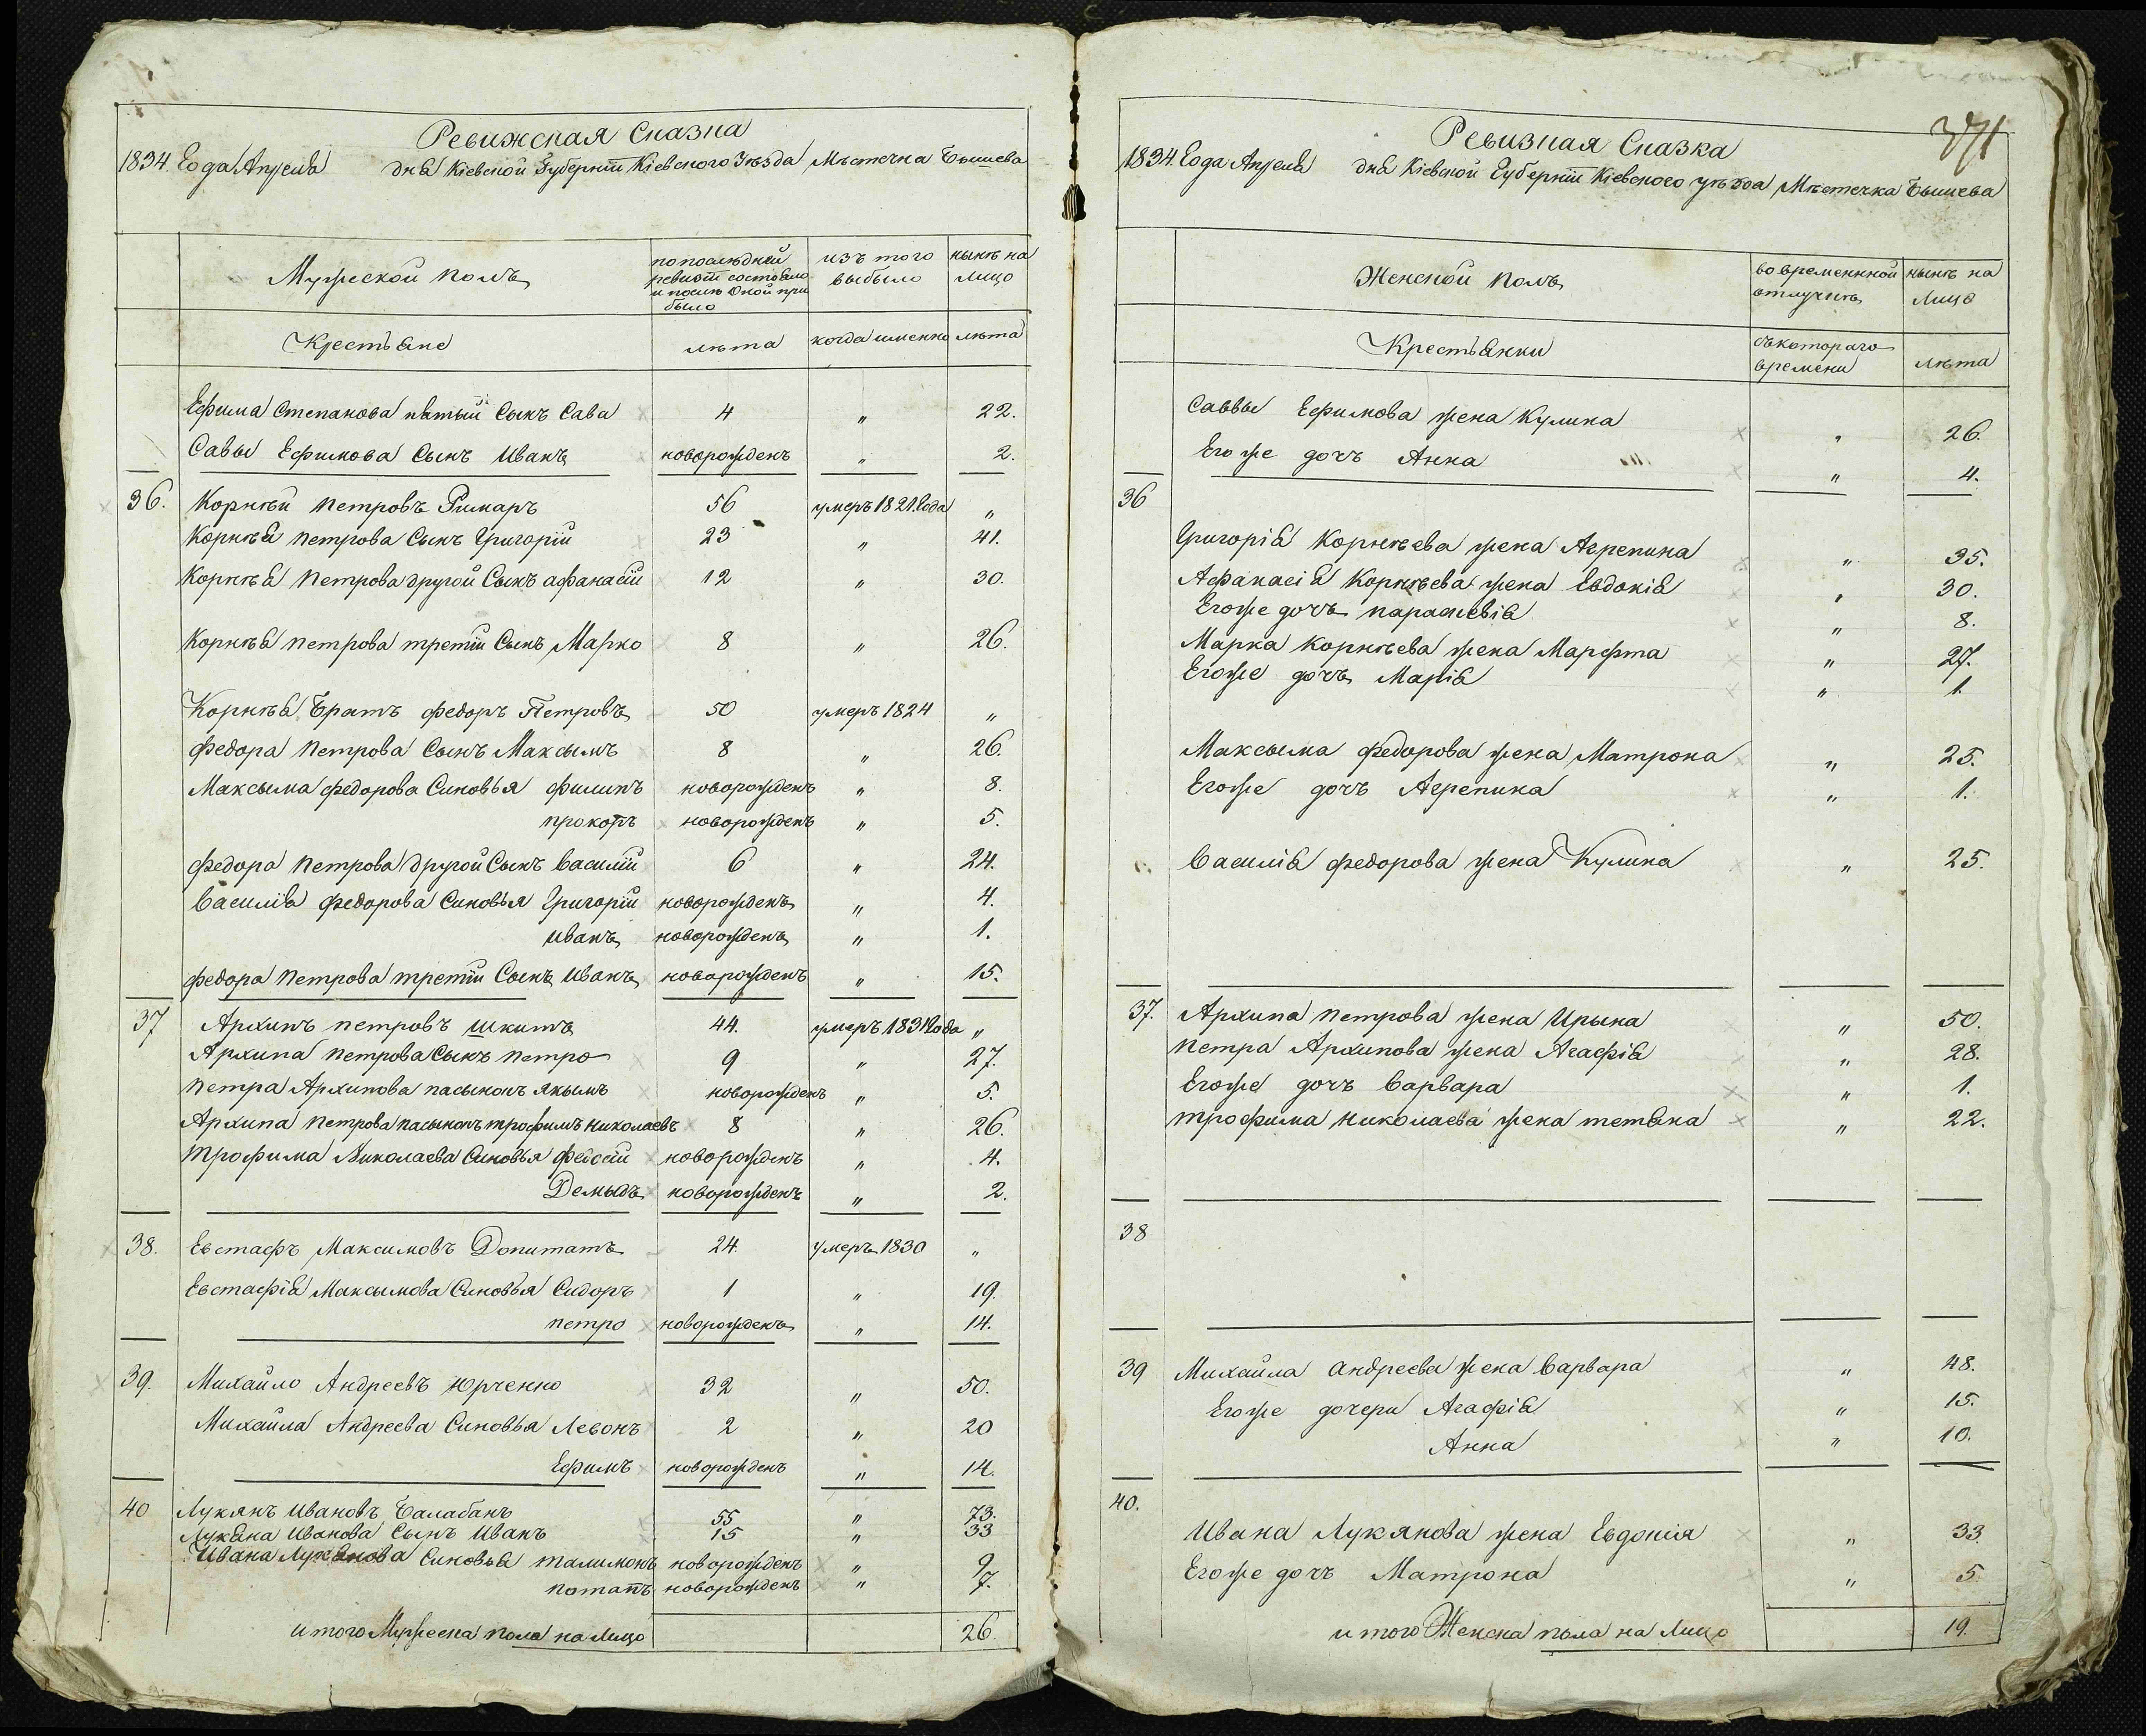 Ревижская Сказка
1834. Года Апреля дня Кіевской Губерніи Кіевского Уѣзда Мѣстечка Бышева
Мужеской полъ
по последней ревизіи состояло и после оной прибыло
изъ того выбыло
нынѣ на лицо
Крестьяне
лѣта
когда именно
лѣта
Ефима Степанова пятый Сынъ Сава 4 " 22.
Савы Ефимова Сынъ Иванъ новорожденъ " 2.
36. Корнѣй Петровъ Римаръ 56 умеръ 1821 Года "
Корнѣя Петрова Сынъ Григорій 23 " 41.
Корнѣя Петрова другой Сынъ афанасій 12 " 30.
Корнѣя петрова третій Сынъ Марко 8 " 26.
Корнѣя Братъ федоръ Петровъ 50 умеръ 1824 "
федора Петрова Сынъ Максымъ 8 " 26.
Максыма федорова Синовья филипъ новорожденъ " 8.
прокопъ новорожденъ " 5.
федора Петрова другой Сынъ Василій 6 " 24.
Василія федорова Синовья Григорій новорожденъ " 4.
Иванъ новорожденъ " 1.
федора Петрова третій Сынъ Иванъ новорожденъ " 15.
37 Архипъ петровъ шкитъ 44. умеръ 1831 Года "
Архипа петрова Сынъ петро 9 " 27.
Петра Архипова пасынокъ якымъ новорожденъ " 5.
Архипа петрова пасынокъ трофимъ николаевъ 8 " 26.
Трофима Николаева Синовья федосій новорожденъ " 4.
Демыдъ новорожденъ " 2.
38. Евстафъ Максимовъ Допитатъ 24. умеръ 1830 "
Евстафія Максымова Синовья Сидоръ 1 " 19.
петро новорожденъ " 14.
39. Михайло Андреевъ Юрченко 32 " 50.
Михайла Андреева Синовья Левонъ 2 " 20
Ефимъ новорожденъ " 14.
40 Лукянъ Ивановъ Балабанъ 55 " 73.
Лукяна Иванова Сынъ Иванъ 15 " 33
Ивана Лукянова Синовья талимонъ новорожденъ " 9.
потапъ новорожденъ " 7.
итого Мужеска пола на лицо 26.
371
Ревизная Сказка
1834. Года Апреля дня Кіевской Губерніи Кіевского уѣзда Мѣстечка Бышева
Женской полъ
во временнной отлучкѣ
нынѣ на лицо
Крестьянки
съ котораго времени
лѣта
Саввы Ефимова жена Кулина " 26.
Его же дочъ Анна " 4.
36
Григорія Корнѣева жена Агрепина " 35.
Афанасія Корнѣева жена Евдокія " 30.
Егоже дочъ параскевія " 8.
Марка Корнѣева жена Марфта " 27.
Егоже дочъ Марія " 1.
Максыма федорова жена Матрона " 25.
Егоже дочъ Агрепина " 1.
Василія федорова жена Кулина " 25.
37. Архипа петрова жена Ирына " 50.
петра Архипова жена Агафія " 28.
Егоже дочъ Варвара " 1.
трофима николаева жена тетяна " 22.
38
39 Михайла андреева жена Варвара " 48.
Егоже дочери Агафія " 15.
Анна " 10.
40.
Ивана Лукянова жена Евдокія " 33.
Егоже дочъ Матрона " 5
итого Женска пола на лицо 19.